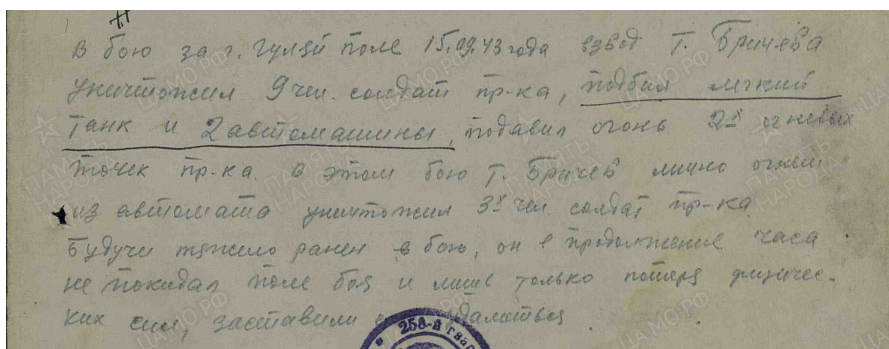 В бою за г. Гуляй поле 15.09.43 года взвод т. Бричева
уничтожил 9 чел. солдат пр-ка, подбил легкий
танк и 2 автомашины, подавил огонь 2х огневых
точек пр-ка. В этом бою т. Бричев лично огнем
из автомата уничтожил 3х чел. солдат пр-ка.
Будучи тяжело ранен в бою, он в продолжение часа
не покидал поле боя и лишь только потеря физичес-
ких сил, заставили
258-й гвар